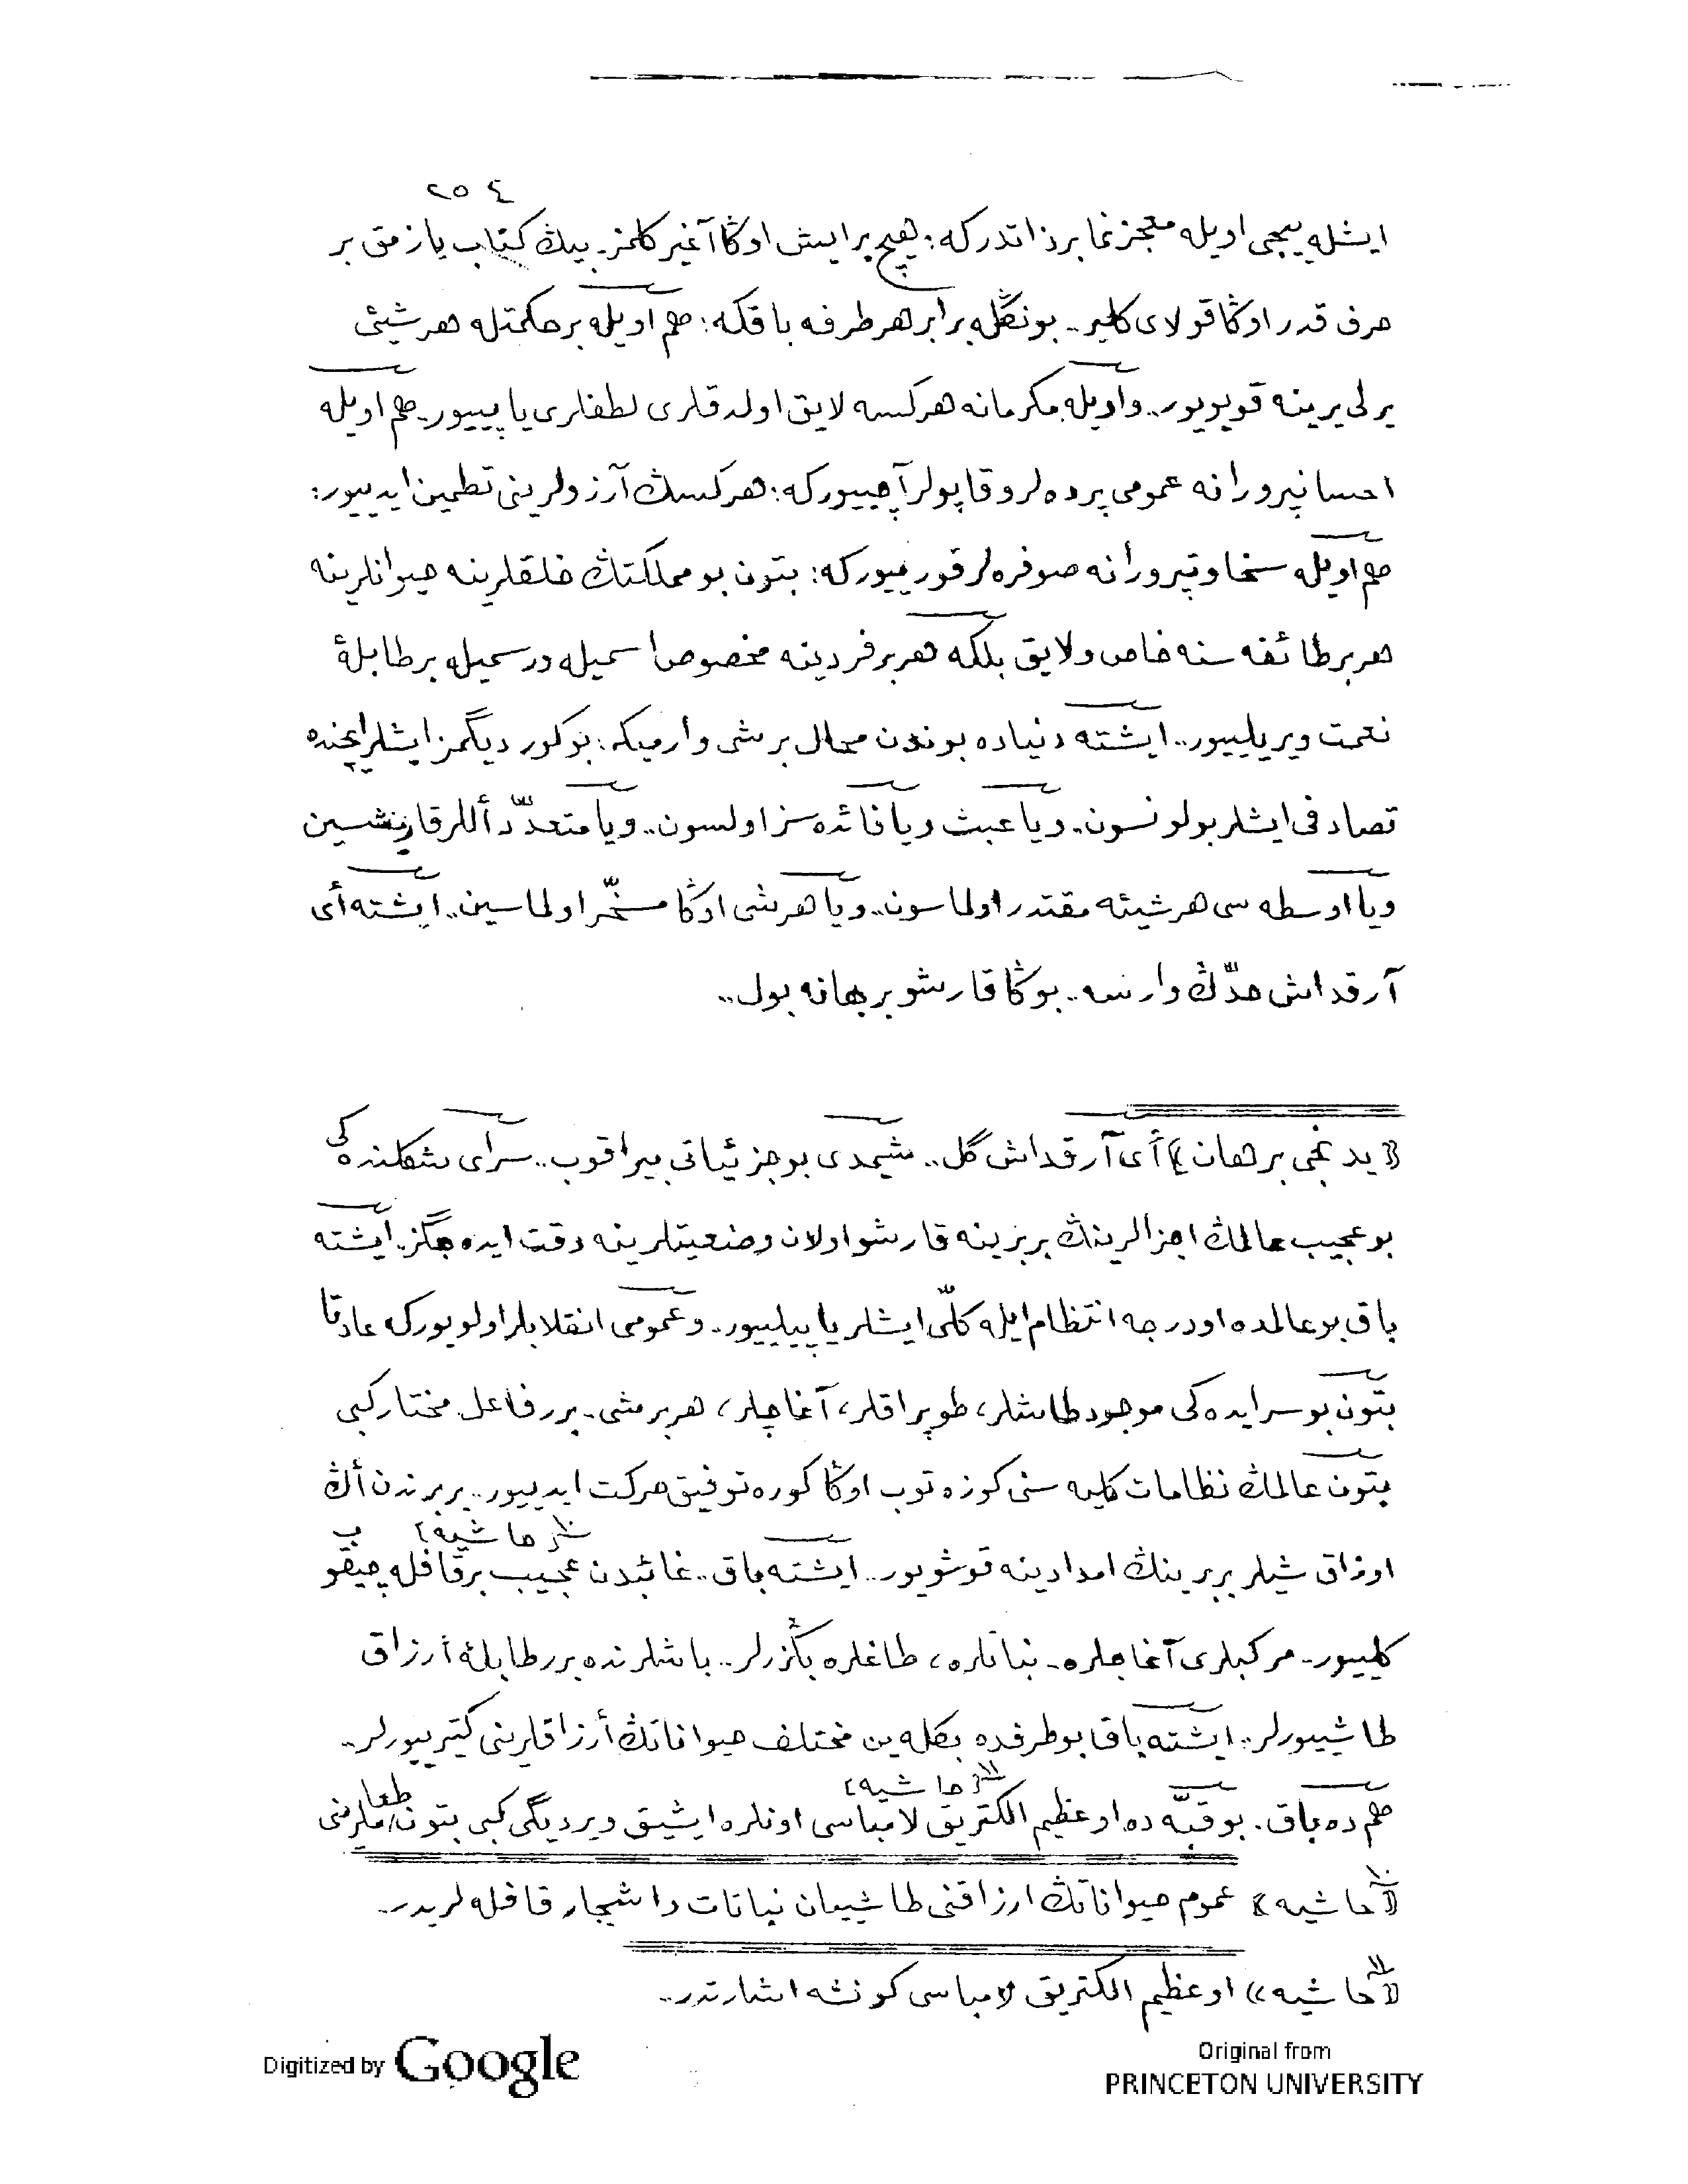 ٢٥٤
ایشله‌ییجی اویله معجزنما بر ذاتدر که: هیچ بر ایش اوڭا آغیر كلمز. بیڭ كتاب یازمق بر
حرف قدر اوڭا قولای كلیر.. بونڭله برابر هر طرفه باقكه: هم اویله بر حكمتله هر شیئی
یرلی یرینه قویویور.. و اویله مكرمانه هركسه لایق اولدقلری لطفلری یاپییور. هم اویله
احسانپرورانه عمومی پرده‌لر و قاپولر آچییور كه: هركسڭ آرزولرینی تطمین ایدییور:
هم اویله سخاوتپرورانه صوفره‌لر قورییور كه: بتون بو مملكتڭ خلقلرینه حیوانلرینه
هر بر طائفه سنه خاص و لایق بلكه هر بر فردینه مخصوص اسمیله و رسمیله بر طابلۀ
نعمت ویریلییور.. ایشته دنیاده بوندن محال بر شی وارمیكه: بو كوردیگمز ایشلر ایچنده
تصادفی ایشلر بولونسون.. ویا عبث ویا فائده سز اولسون.. ویا متعدّد أللر قاریشسین
ویا اوسطه سی هر شیئه مقتدر اولماسون.. ویا هر شی اوڭا مسخّر اولماسین.. ایشته أی
آرقداش حدّڭ وارسه.. بوڭا قارشو بر بهانه بول..
⟪یدنجی برهان⟫ أی آرقداش گل.. شیمدی بو جزئیاتی بیراقوب.. سرای شكلنده كی
بو عجیب عالمڭ اجزالرینڭ بربرینه قارشو اولان وضعیتلرینه دقت ایده جگز. ایشته
باق بو عالمده او درجه انتظام ایله كلّی ایشلر یاپیلییور.. و عمومی انقلابلر اولویور كه عادتا
بتون بو سرایده كی موجود طاشلر، طوپراقلر، آغاچلر، هر بر شی. برر فاعل مختار كبی
بتون عالمڭ نظامات كلیه سنی كوزه توب اوڭا كوره توفیق حركت ایدییور.. بربرندن أڭ
اوزاق شیلر بربرینڭ امدادینه قوشویور.. ایشته باق.. غائبدن عجیب بر قافله ⟪حاشیه⟫ چیقوب
كلییور.. مركبلری آغاچلره. نباتلره، طاغلره بڭزرلر.. باشلرنده برر طابلۀ أرزاق
طاشییورلر.. ایشته باق بو طرفده بكله‌ین مختلف حیواناتڭ أرزاقلرینی كتیرییورلر..
هم ده باق. بو قبّه ده او عظیم الكتریق لامباسی ⟪حاشیه⟫ اونلره ایشیق ویردیگی كبی بتون طعاملرینی
⟪حاشیه⟫ عموم حیواناتڭ ارزاقنی طاشییان نباتات و اشجار قافله لریدر.
⟪حاشیه⟫ او عظیم الكتریق لامباسی كونشه اشارتدر..
Digitized by Google
Original from
PRINCETON UNIVERSITY